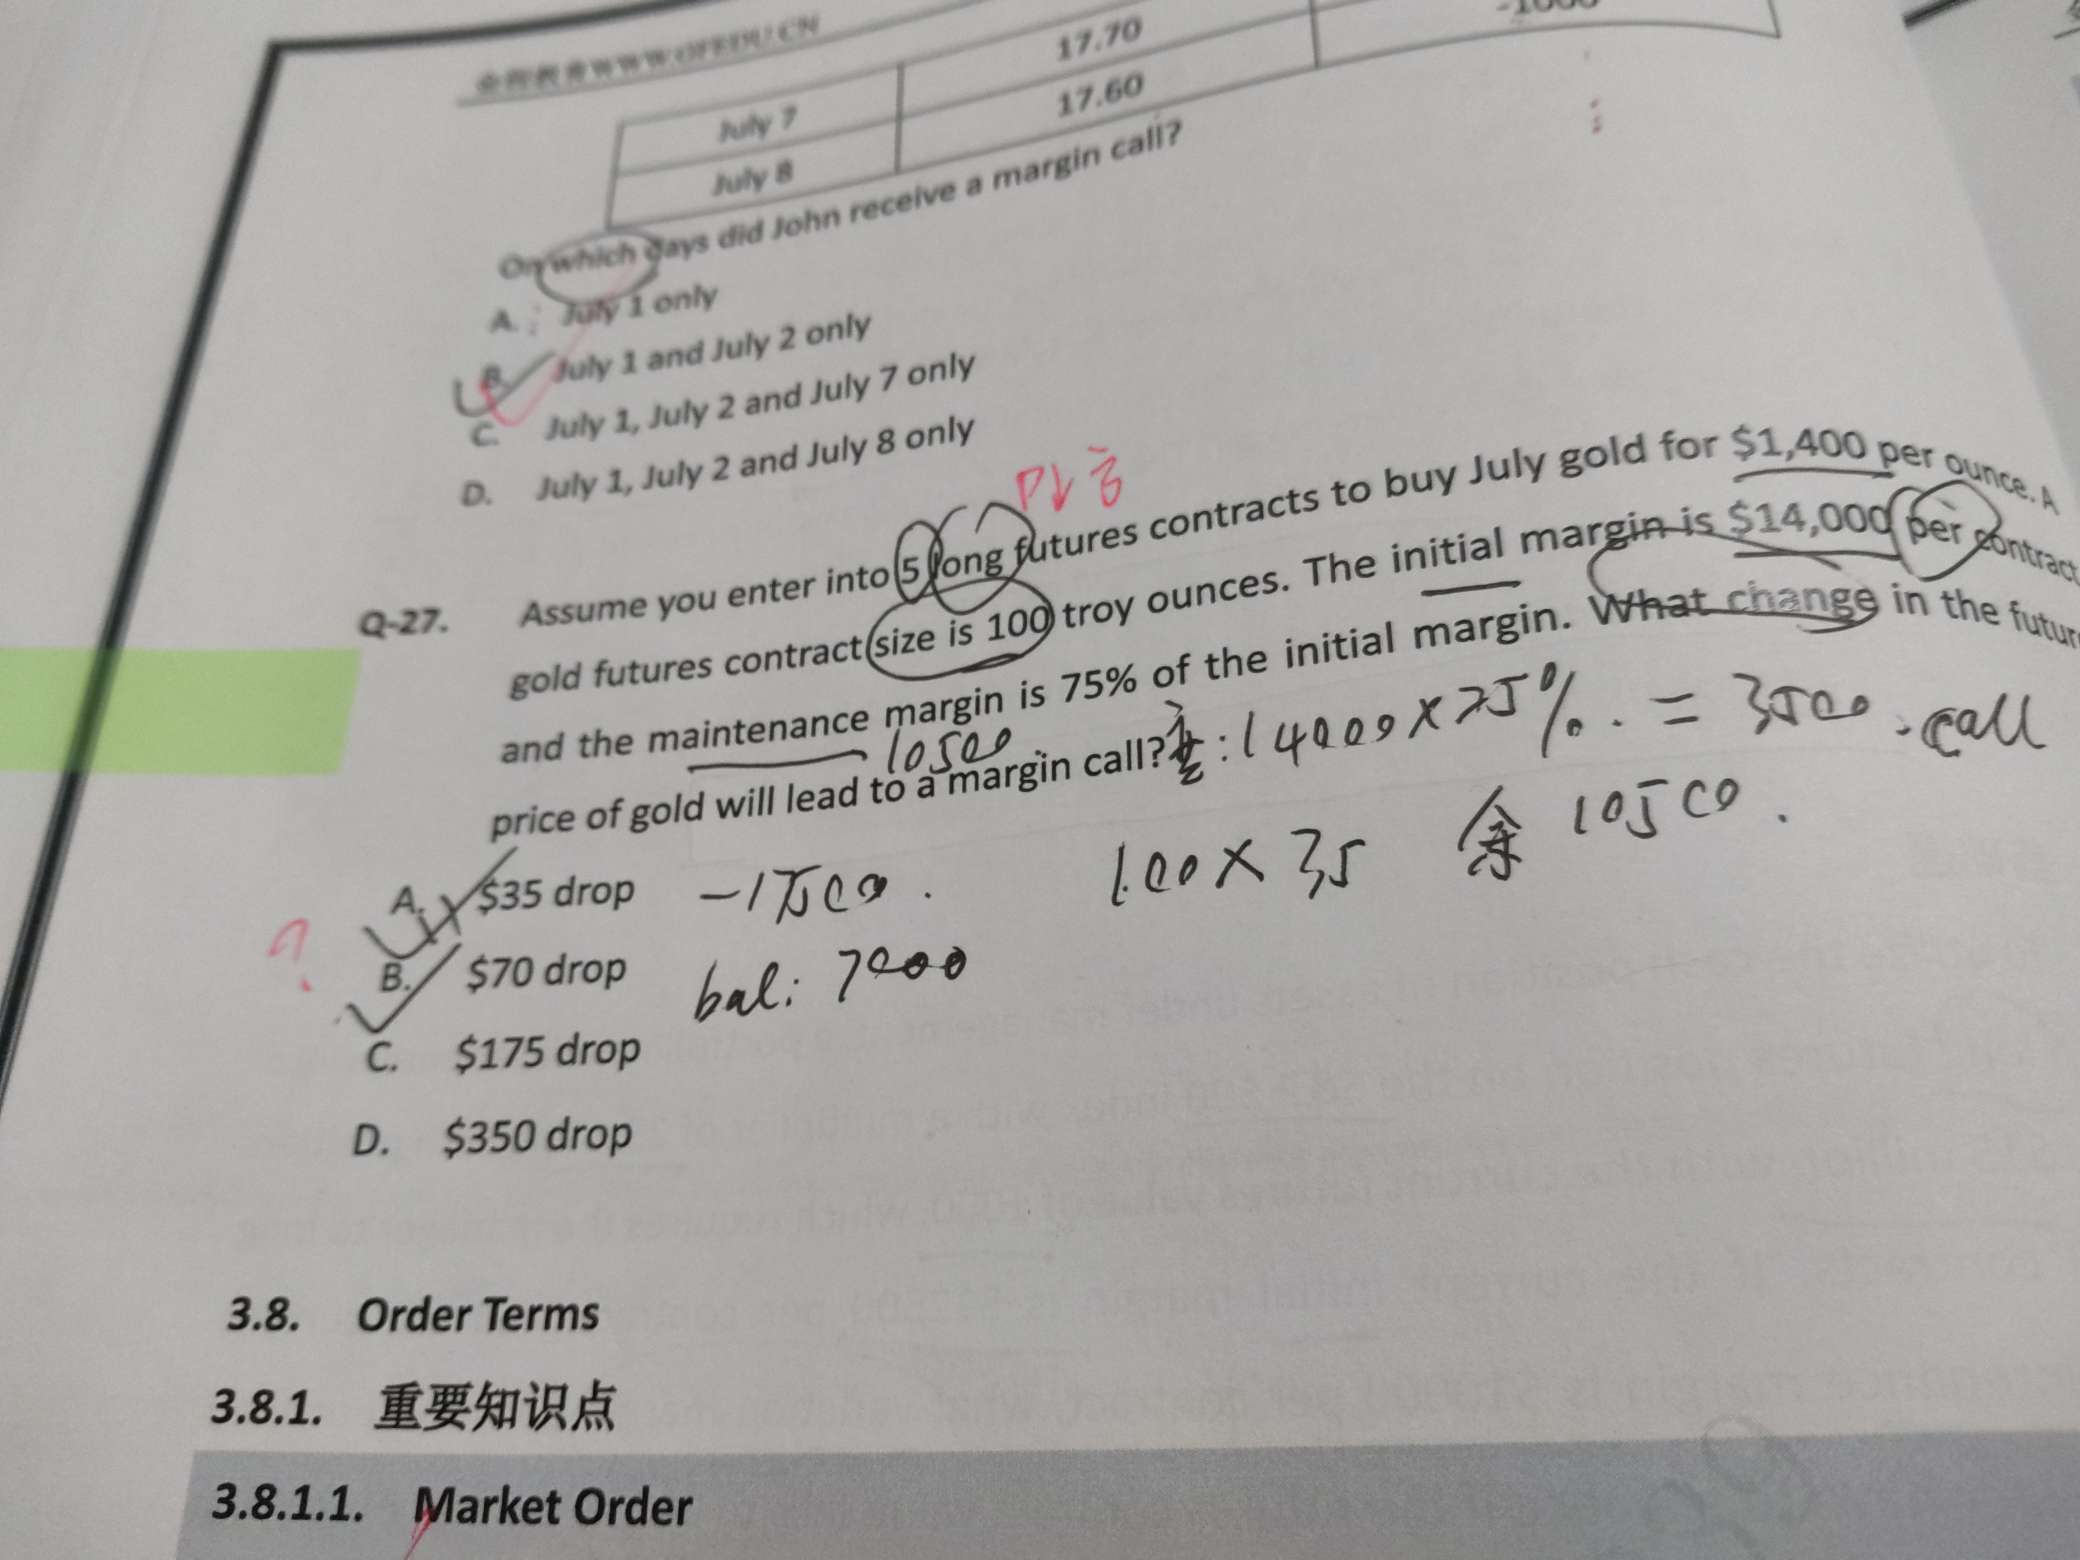 WWW.GFEDU.CN
17.70
July 7
17.60
July 8
On which days did John receive a margin call?
A. July 1 only
B. July 1 and July 2 only
C. July 1, July 2 and July 7 only
D. July 1, July 2 and July 8 only
Q-27. Assume you enter into 5 long futures contracts to buy July gold for $1,400 per ounce. A
gold futures contract size is 100 troy ounces. The initial margin is $14,000 per contract
and the maintenance margin is 75% of the initial margin. What change in the futur
10500
price of gold will lead to a margin call? : 14000 × 25% = 3500. call
余 10500.
A. $35 drop
100 × 35
B. $70 drop
bal: 7000
C. $175 drop
D. $350 drop
3.8. Order Terms
3.8.1. 重要知识点
3.8.1.1. Market Order